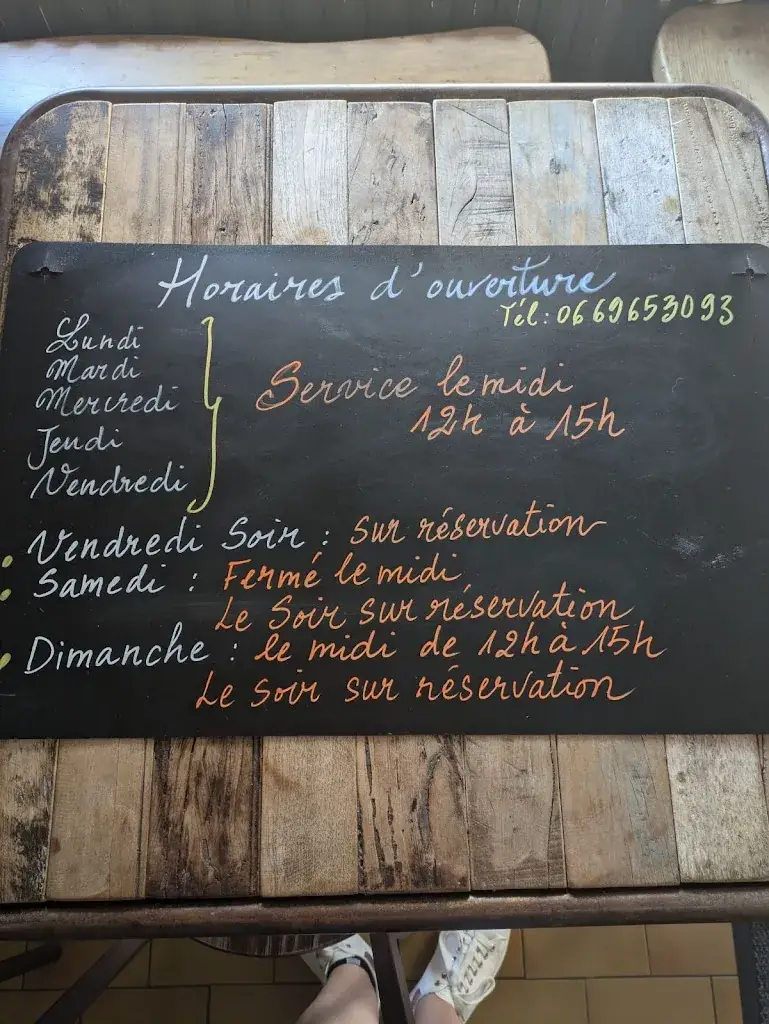 Horaires d'ouverture
Tél : 0669653093
Lundi
Mardi
Mercredi
Jeudi
Vendredi
Service le midi
12h à 15h
Vendredi Soir : Sur réservation
Samedi : Fermé le midi
Le Soir sur réservation
Dimanche : le midi de 12h à 15h
Le Soir sur réservation